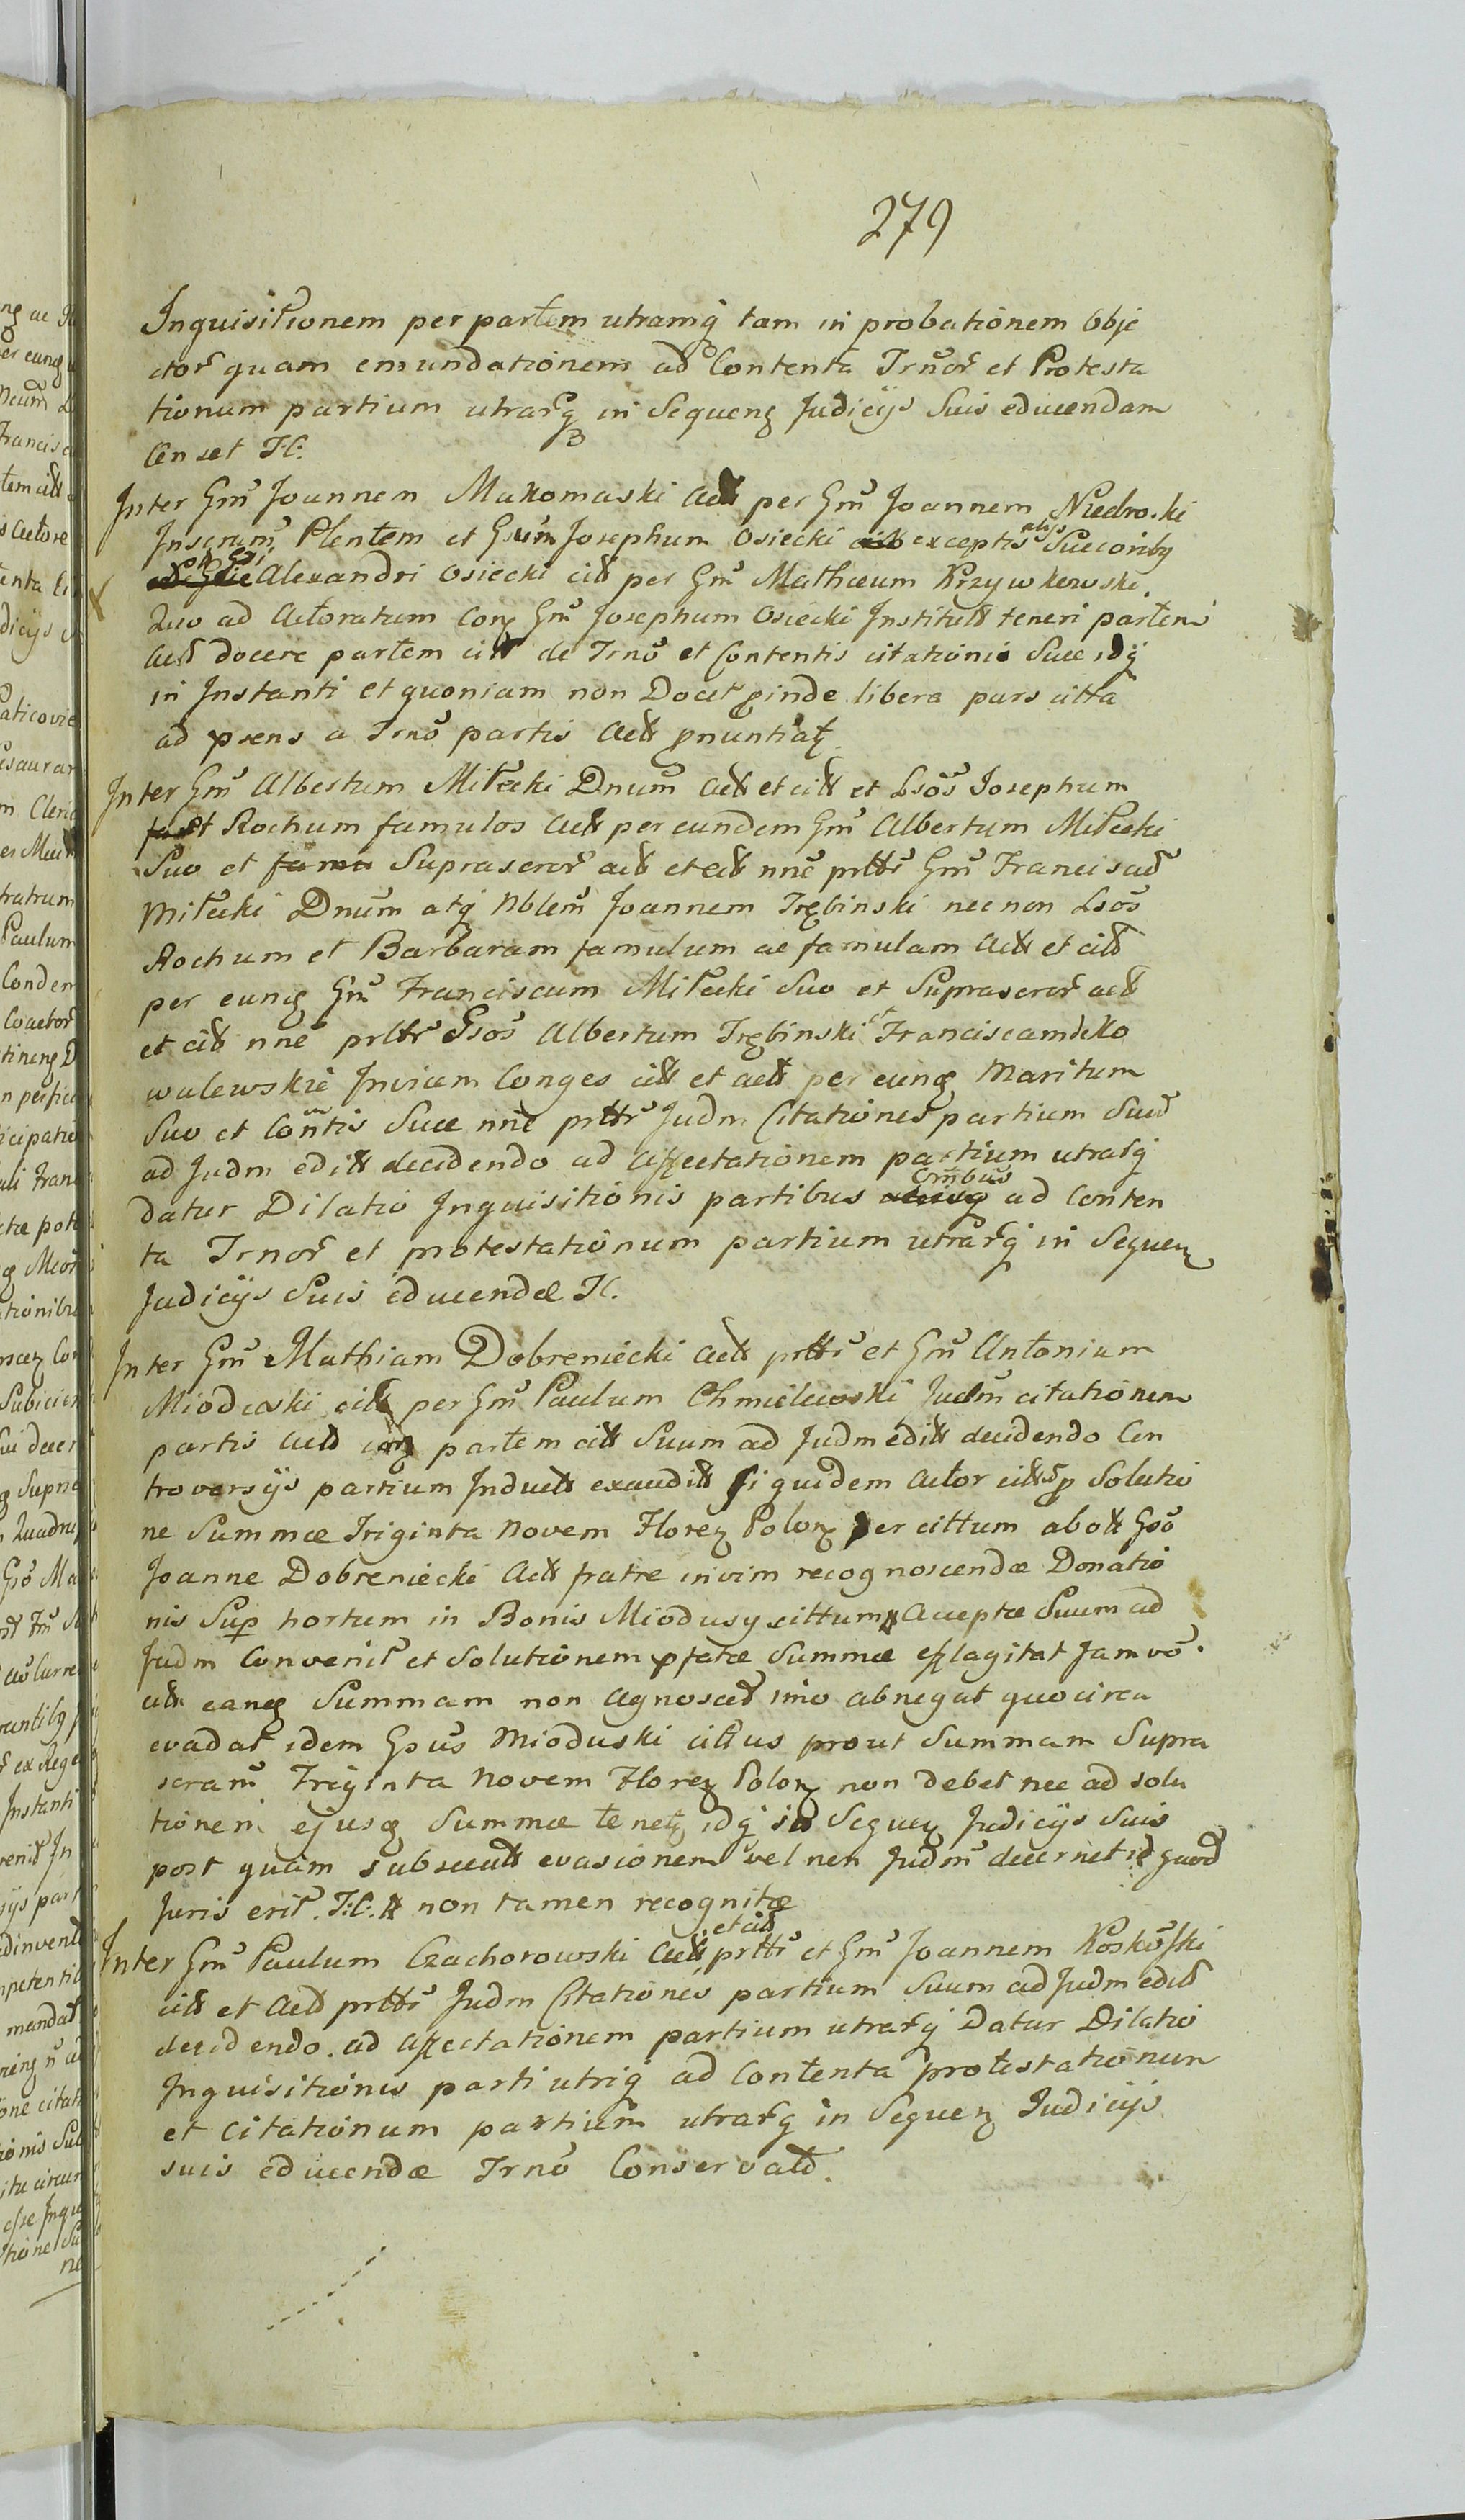 279
Inquisitionem per partem utramq tam in probationem Obje
ctor quam emundationem ad Contenta Trnor et Protesta
tionum partium utrarq in Sequenz Judicijs Suis educendam
Censet T.C.
Inter Gm Joannem Makomaski Act per Gm Joannem
Inscrum Plentem et Gsum Josephum Osiecki exceptis alijs Succorib9
Alexandri Osiecki citt per Gm Mathæum Krzywkowski
Quo ad Actoratum Conz Gm Josephum Osiecki Institutt teneri partem
Act docere partem citt de Trno et Contentis citationis Suæ idq
in Instanti et quoniam non Docet pinde libera pars citta
ad præns a Trno partis Actt pnuntiatz
Inter Gm Albertum Milecki Dnum Actt et citt et Lsos Josephum
et Rochum famulos Actt per eundem Gm Albertum Milecki
Suo et Suprascror actt et citt nne prltr Gm Franciscum
Milecki Dnum atq Nblem Joannem Trębinski nec non Lsos
Rochum et Barbaram famulum ac famulam Actt et citt
per eunq Gm Franciscum Milecki Suo et Suprascror actt
et citt nne prltr Gsos Albertum Trębinski et Franciscam de Ko
walewskie Invicem Conges citt et actt per eunq Maritum
Suo et Contis Suæ nne prltr Judm Citationes partium Suas
ad Judm editt decidendo ad affectationem partium utrarq
datur Dilatio Inquisitionis partibus Omnibus ad Conten
ta Trnor et protestationum partium utrarq in Sequenz
Judicijs Suis educendæ T.C.
Inter Gm Mathiam Dobreniecki Actt prltr et Gm Antonium
Mioduski citt per Gm Paulum Chmielewski Judm citationem
partis Actt conz partem citt Suum ad Judm editt decidendo Con
troversijs partium Inductt exauditt si quidem Actor citt p Solutio
ne Summæ Triginta Novem Florenz Polonz per cittum ab ott Gso
Joanne Dobreniecki Actt fratre in vim recognoscendæ Donatio
nis Sup hortum in Bonis Miodusy sittum # Acceptæ Suum ad
Judm Convenit et Solutionem pfatæ Summæ efflagitat Jam vo
citt eanq Summam non Agnoscit imo abnegat quocirca
evadat idem Gsus Mioduski cittus prout Summam Supra
scram Triginta Novem Florenz Polonz non debet nec ad solu
tionem ejusq Summæ tenetz idq in Sequenz Judicijs Suis
post quam subsecutt evasionem vel non Judm decernet id quod
Juris erit. T:C: # non tamen recognitæ
Inter Gm Paulum Czachorowski Actt et citt prltr et Gm Joannem Koskoski
citt et Actt prltr Judm Citationes partium Suum ad Judm editt
decidendo ad Affectationem partium utrarq Datur Dilatio
Inquisitionis parti utriq ad Contenta protestationum
et Citationum partium utrarq in Sequenz Judicijs
suis educendæ Trno Conservatt.